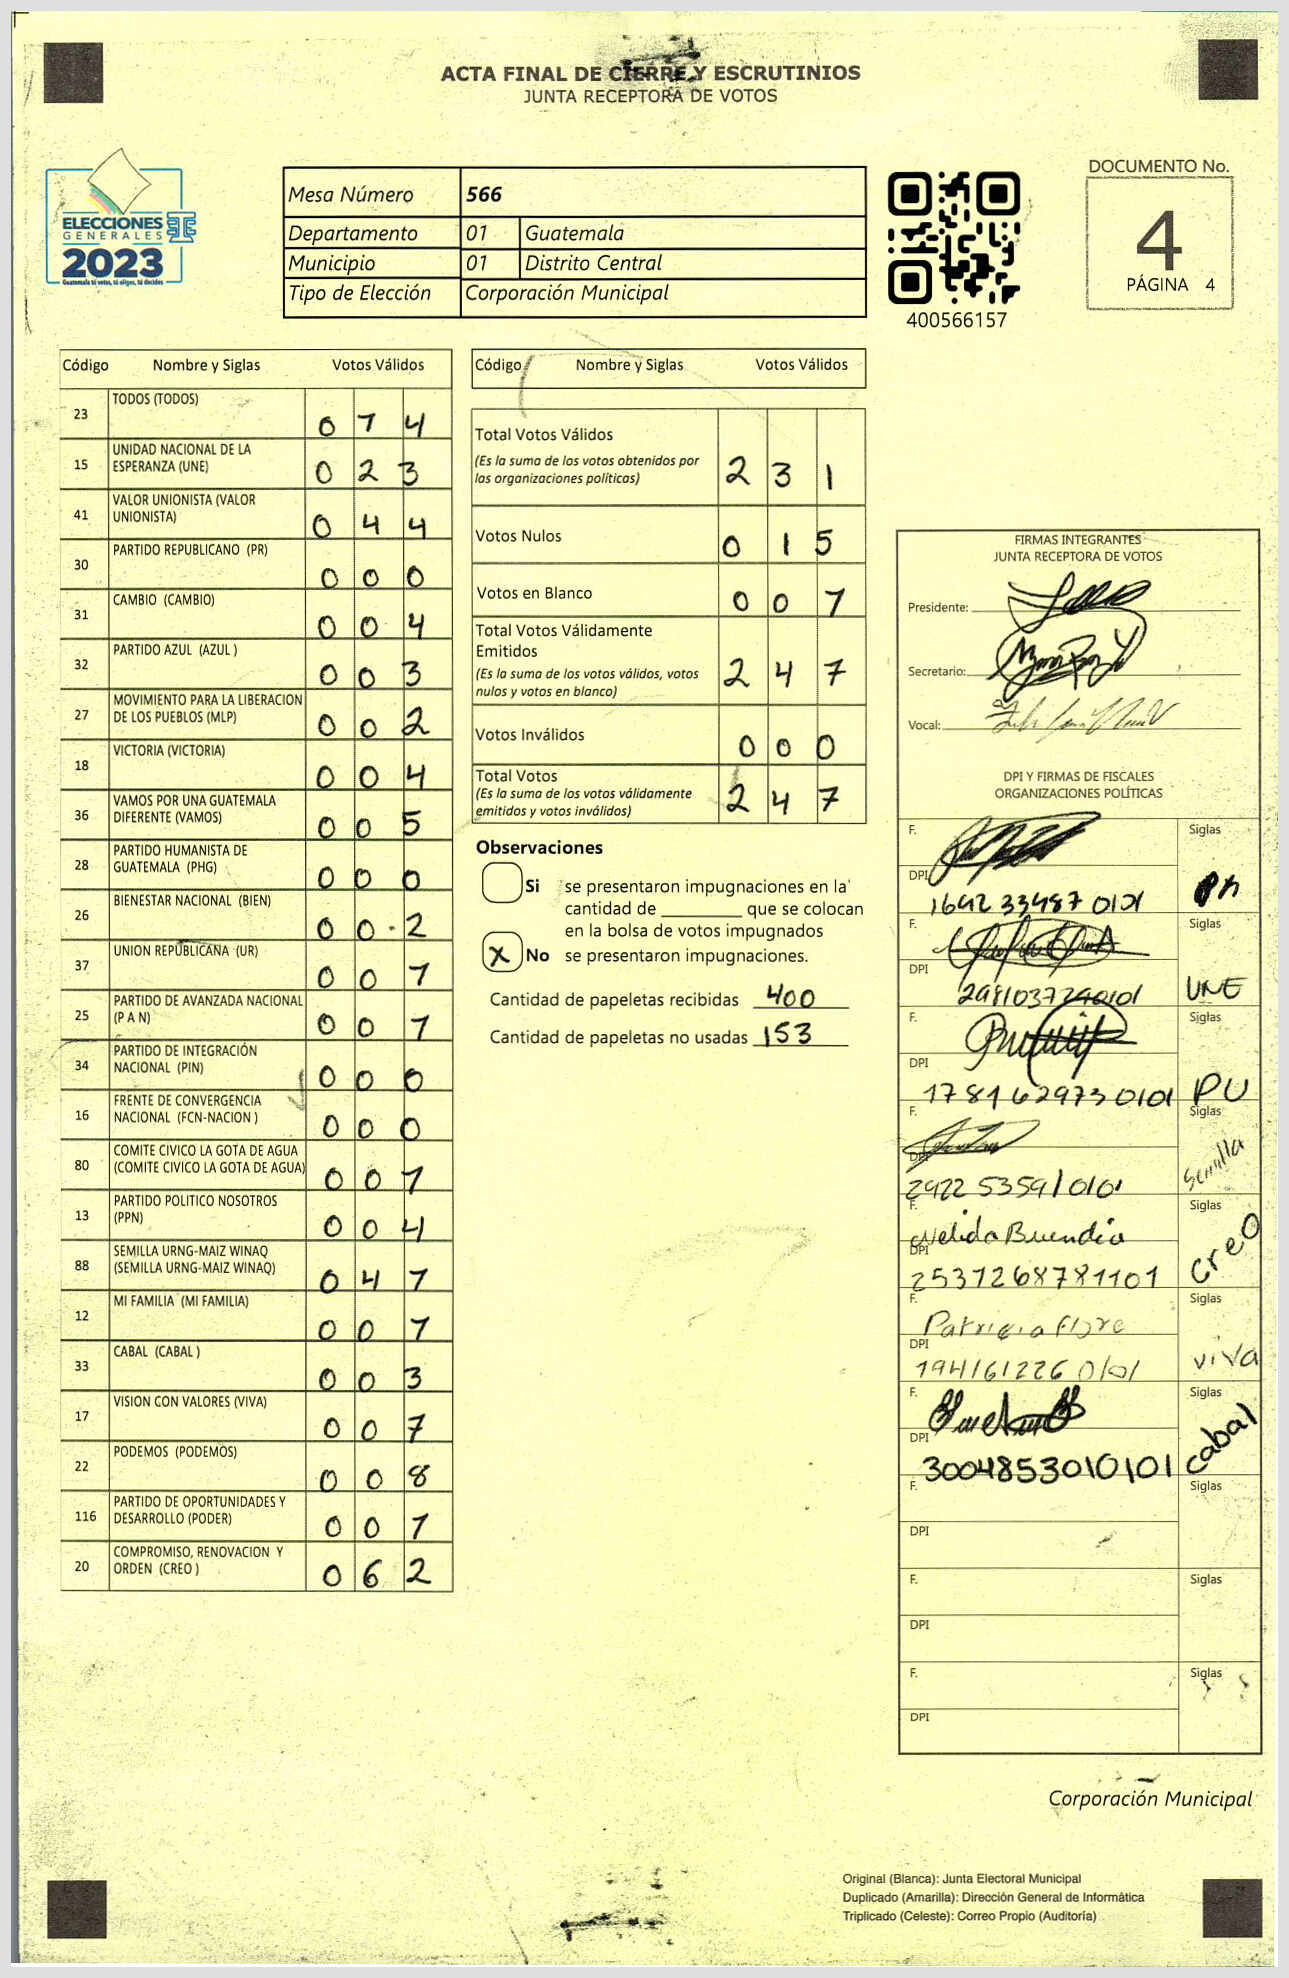 ACTA FINAL DE CIERRE Y ESCRUTINIOS
JUNTA RECEPTORA DE VOTOS
ELECCIONES
GENERALES
2023
Guatemala tú votas, tú eliges, tú decides
Mesa Número 566
Departamento 01 Guatemala
Municipio 01 Distrito Central
Tipo de Elección Corporación Municipal
400566157
DOCUMENTO No.
4
PÁGINA 4
Código Nombre y Siglas Votos Válidos
23 TODOS (TODOS) 0 1 4
15 UNIDAD NACIONAL DE LA
ESPERANZA (UNE) 0 2 3
41 VALOR UNIONISTA (VALOR
UNIONISTA) 0 4 4
30 PARTIDO REPUBLICANO (PR) 0 0 0
31 CAMBIO (CAMBIO) 0 0 4
32 PARTIDO AZUL (AZUL ) 0 0 3
27 MOVIMIENTO PARA LA LIBERACION
DE LOS PUEBLOS (MLP) 0 0 2
18 VICTORIA (VICTORIA) 0 0 4
36 VAMOS POR UNA GUATEMALA
DIFERENTE (VAMOS) 0 0 5
28 PARTIDO HUMANISTA DE
GUATEMALA (PHG) 0 0 0
26 BIENESTAR NACIONAL (BIEN) 0 0 2
37 UNION REPUBLICANA (UR) 0 0 1
25 PARTIDO DE AVANZADA NACIONAL
(P A N) 0 0 1
34 PARTIDO DE INTEGRACIÓN
NACIONAL (PIN) 0 0 0
16 FRENTE DE CONVERGENCIA
NACIONAL (FCN-NACION ) 0 0 0
80 COMITE CIVICO LA GOTA DE AGUA
(COMITE CIVICO LA GOTA DE AGUA) 0 0 1
13 PARTIDO POLITICO NOSOTROS
(PPN) 0 0 4
88 SEMILLA URNG-MAIZ WINAQ
(SEMILLA URNG-MAIZ WINAQ) 0 4 1
12 MI FAMILIA (MI FAMILIA) 0 0 1
33 CABAL (CABAL ) 0 0 3
17 VISION CON VALORES (VIVA) 0 0 7
22 PODEMOS (PODEMOS) 0 0 8
116 PARTIDO DE OPORTUNIDADES Y
DESARROLLO (PODER) 0 0 1
20 COMPROMISO, RENOVACION Y
ORDEN (CREO ) 0 6 2
Código Nombre y Siglas Votos Válidos
Total Votos Válidos
(Es la suma de los votos obtenidos por
las organizaciones políticas) 2 3 1
Votos Nulos 0 1 5
Votos en Blanco 0 0 1
Total Votos Válidamente
Emitidos
(Es la suma de los votos válidos, votos
nulos y votos en blanco) 2 4 7
Votos Inválidos 0 0 0
Total Votos
(Es la suma de los votos válidamente
emitidos y votos inválidos) 2 4 7
Observaciones
Si se presentaron impugnaciones en la
cantidad de ________ que se colocan
en la bolsa de votos impugnados
X No se presentaron impugnaciones.
Cantidad de papeletas recibidas 400
Cantidad de papeletas no usadas 153
FIRMAS INTEGRANTES
JUNTA RECEPTORA DE VOTOS
Presidente:
Secretario:
Vocal:
DPI Y FIRMAS DE FISCALES
ORGANIZACIONES POLÍTICAS
F. Siglas
DPI
F. Siglas
DPI UNE
F. Siglas
DPI
1781629730101 PU
F. Siglas
DPI
2922 53591 0101 Semilla
F. Siglas
Nelida Buendia
DPI
2537268781101 creo
F. Siglas
Patricia Flore
DPI
1941612260101 viva
F. Siglas
DPI
3004853010101 cabal
F. Siglas
DPI
F. Siglas
DPI
F. Siglas
DPI
Corporación Municipal
Original (Blanca): Junta Electoral Municipal
Duplicado (Amarilla): Dirección General de Informática
Triplicado (Celeste): Correo Propio (Auditoría)